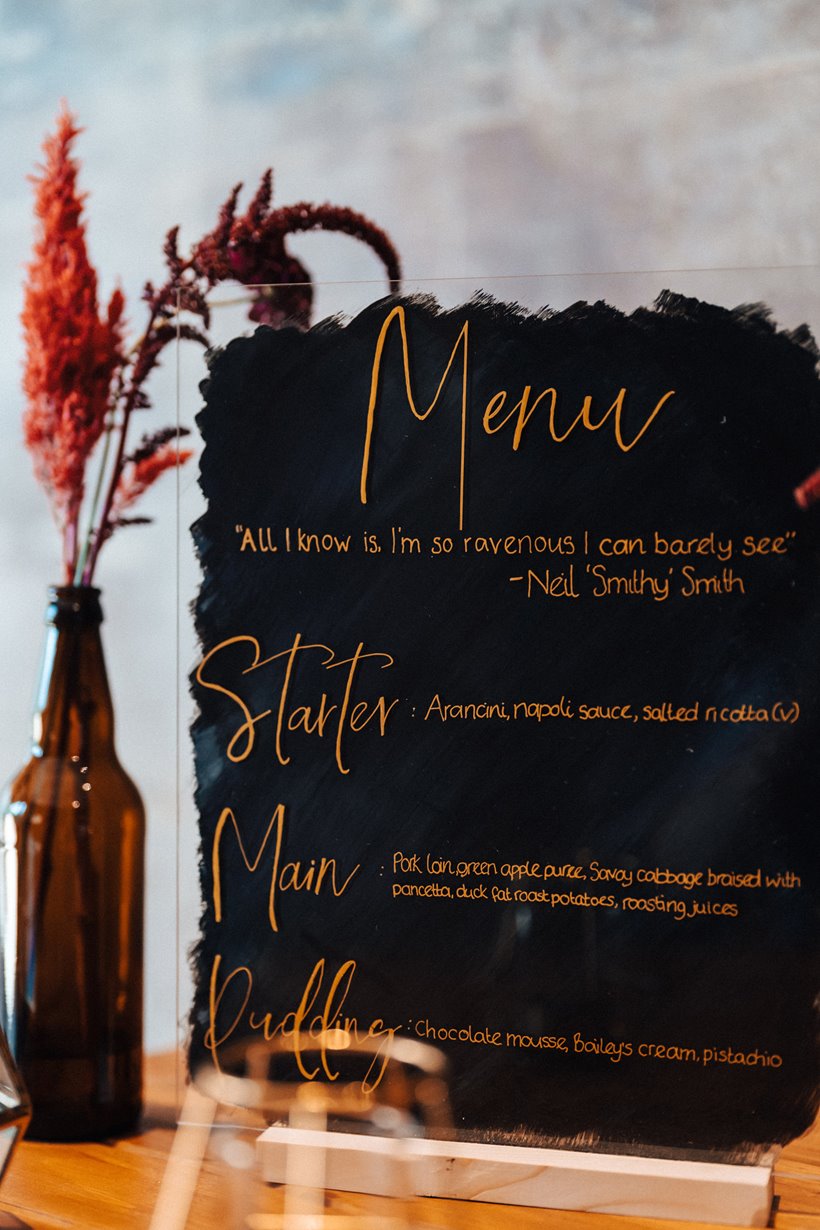 Menu
"All I know is, I'm so ravenous I can barely see"
-Neil 'Smithy' Smith
Starter : Arancini, napoli sauce, salted ricotta (v)
Main : Pork loin, green apple puree, Savoy cabbage braised with
pancetta, duck fat roast potatoes, roasting juices
Pudding : Chocolate mousse, Bailey's cream, pistachio